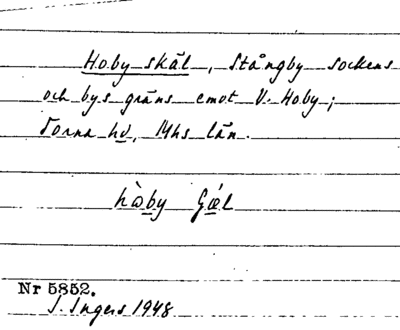 Hoby skäl, Stångby sockens
och bys gräns emot V. Hoby;
Torna hd, Mhs län.
hòby
Nr 5852.
I. Ingers 1948